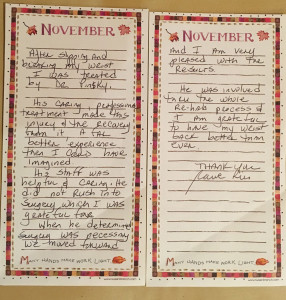 NOVEMBER
After slipping and
breaking my wrist
I was treated
by Dr
His caring, professional
treatment made this
injury & the recovery
from it a far
better experience
than I could have
imagined
His staff was
helpful & caring. He
did not rush into
surgery which I was
grateful for
When he determined
surgery was necessary
we moved forward
MANY HANDS MAKE WORK LIGHT
NOVEMBER
And I am very
pleased with the
Results.
He was involved
thru the whole
Re-hab process &
I am grateful
to have my wrist
back better than
ever
THANK YOU
MANY HANDS MAKE WORK LIGHT